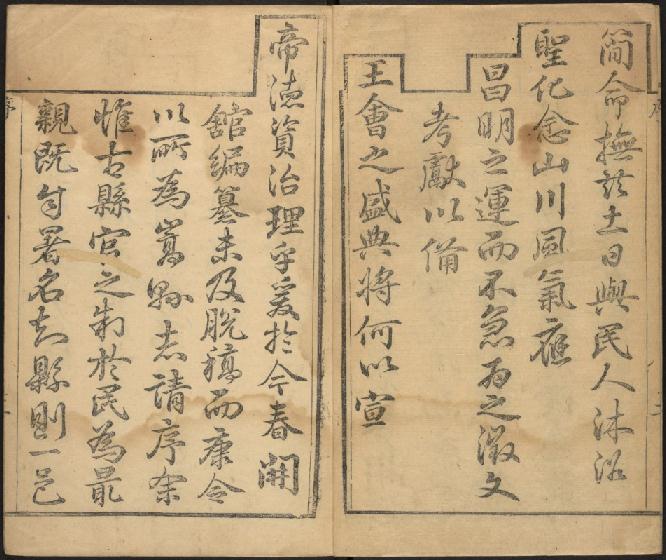 簡命撫茲土日與民人沐浴
聖化念山川風氣應
昌明之運而不急為之徵文
考獻以備
王會之盛典將何以宣
帝德資治理乎爰於今春開
舘編纂未及脫稿而康令
以所為嵩縣志請序余
惟古縣官之制於民為最
親既自署名知縣則一邑
序